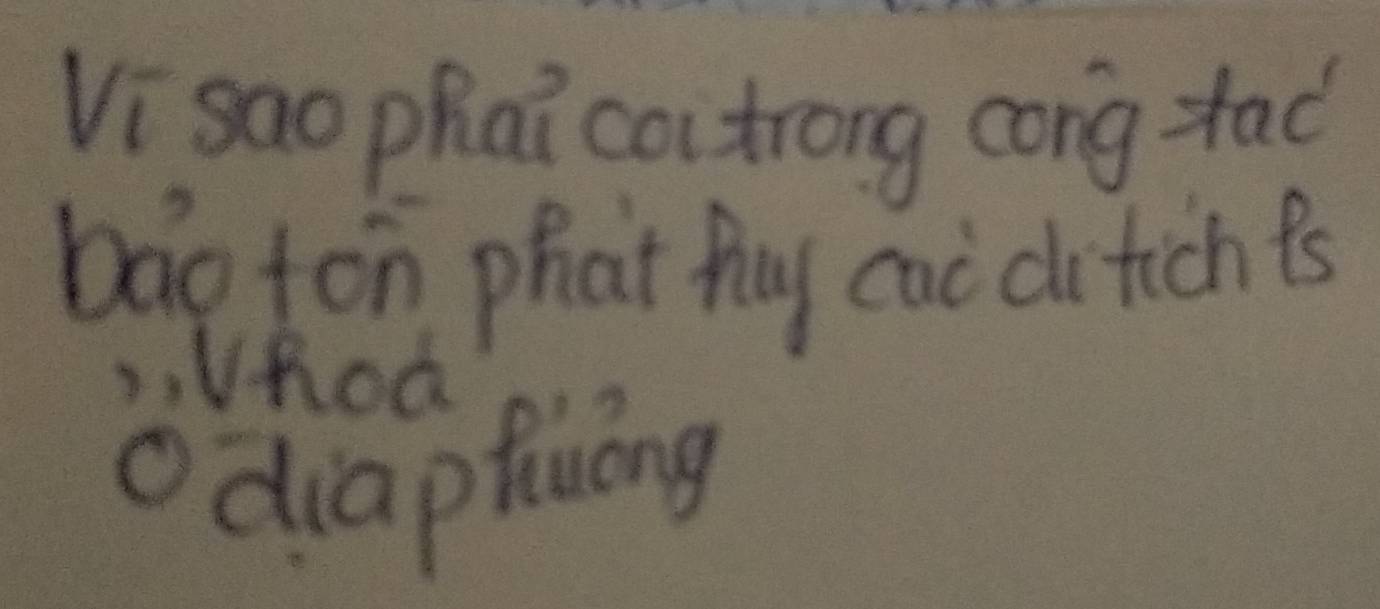 Vì sao phải coi trọng công tác
bảo tồn phát huy các di tích ls
,, Vhoá
ở địa phương